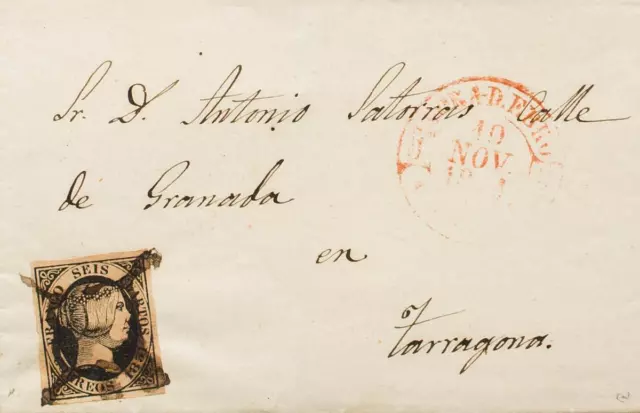 Sr. D. Antonio Satorras Calle
de Granada
en
Tarragona.
10
NOV.
FRANCO SEIS CUARTOS
CORREOS